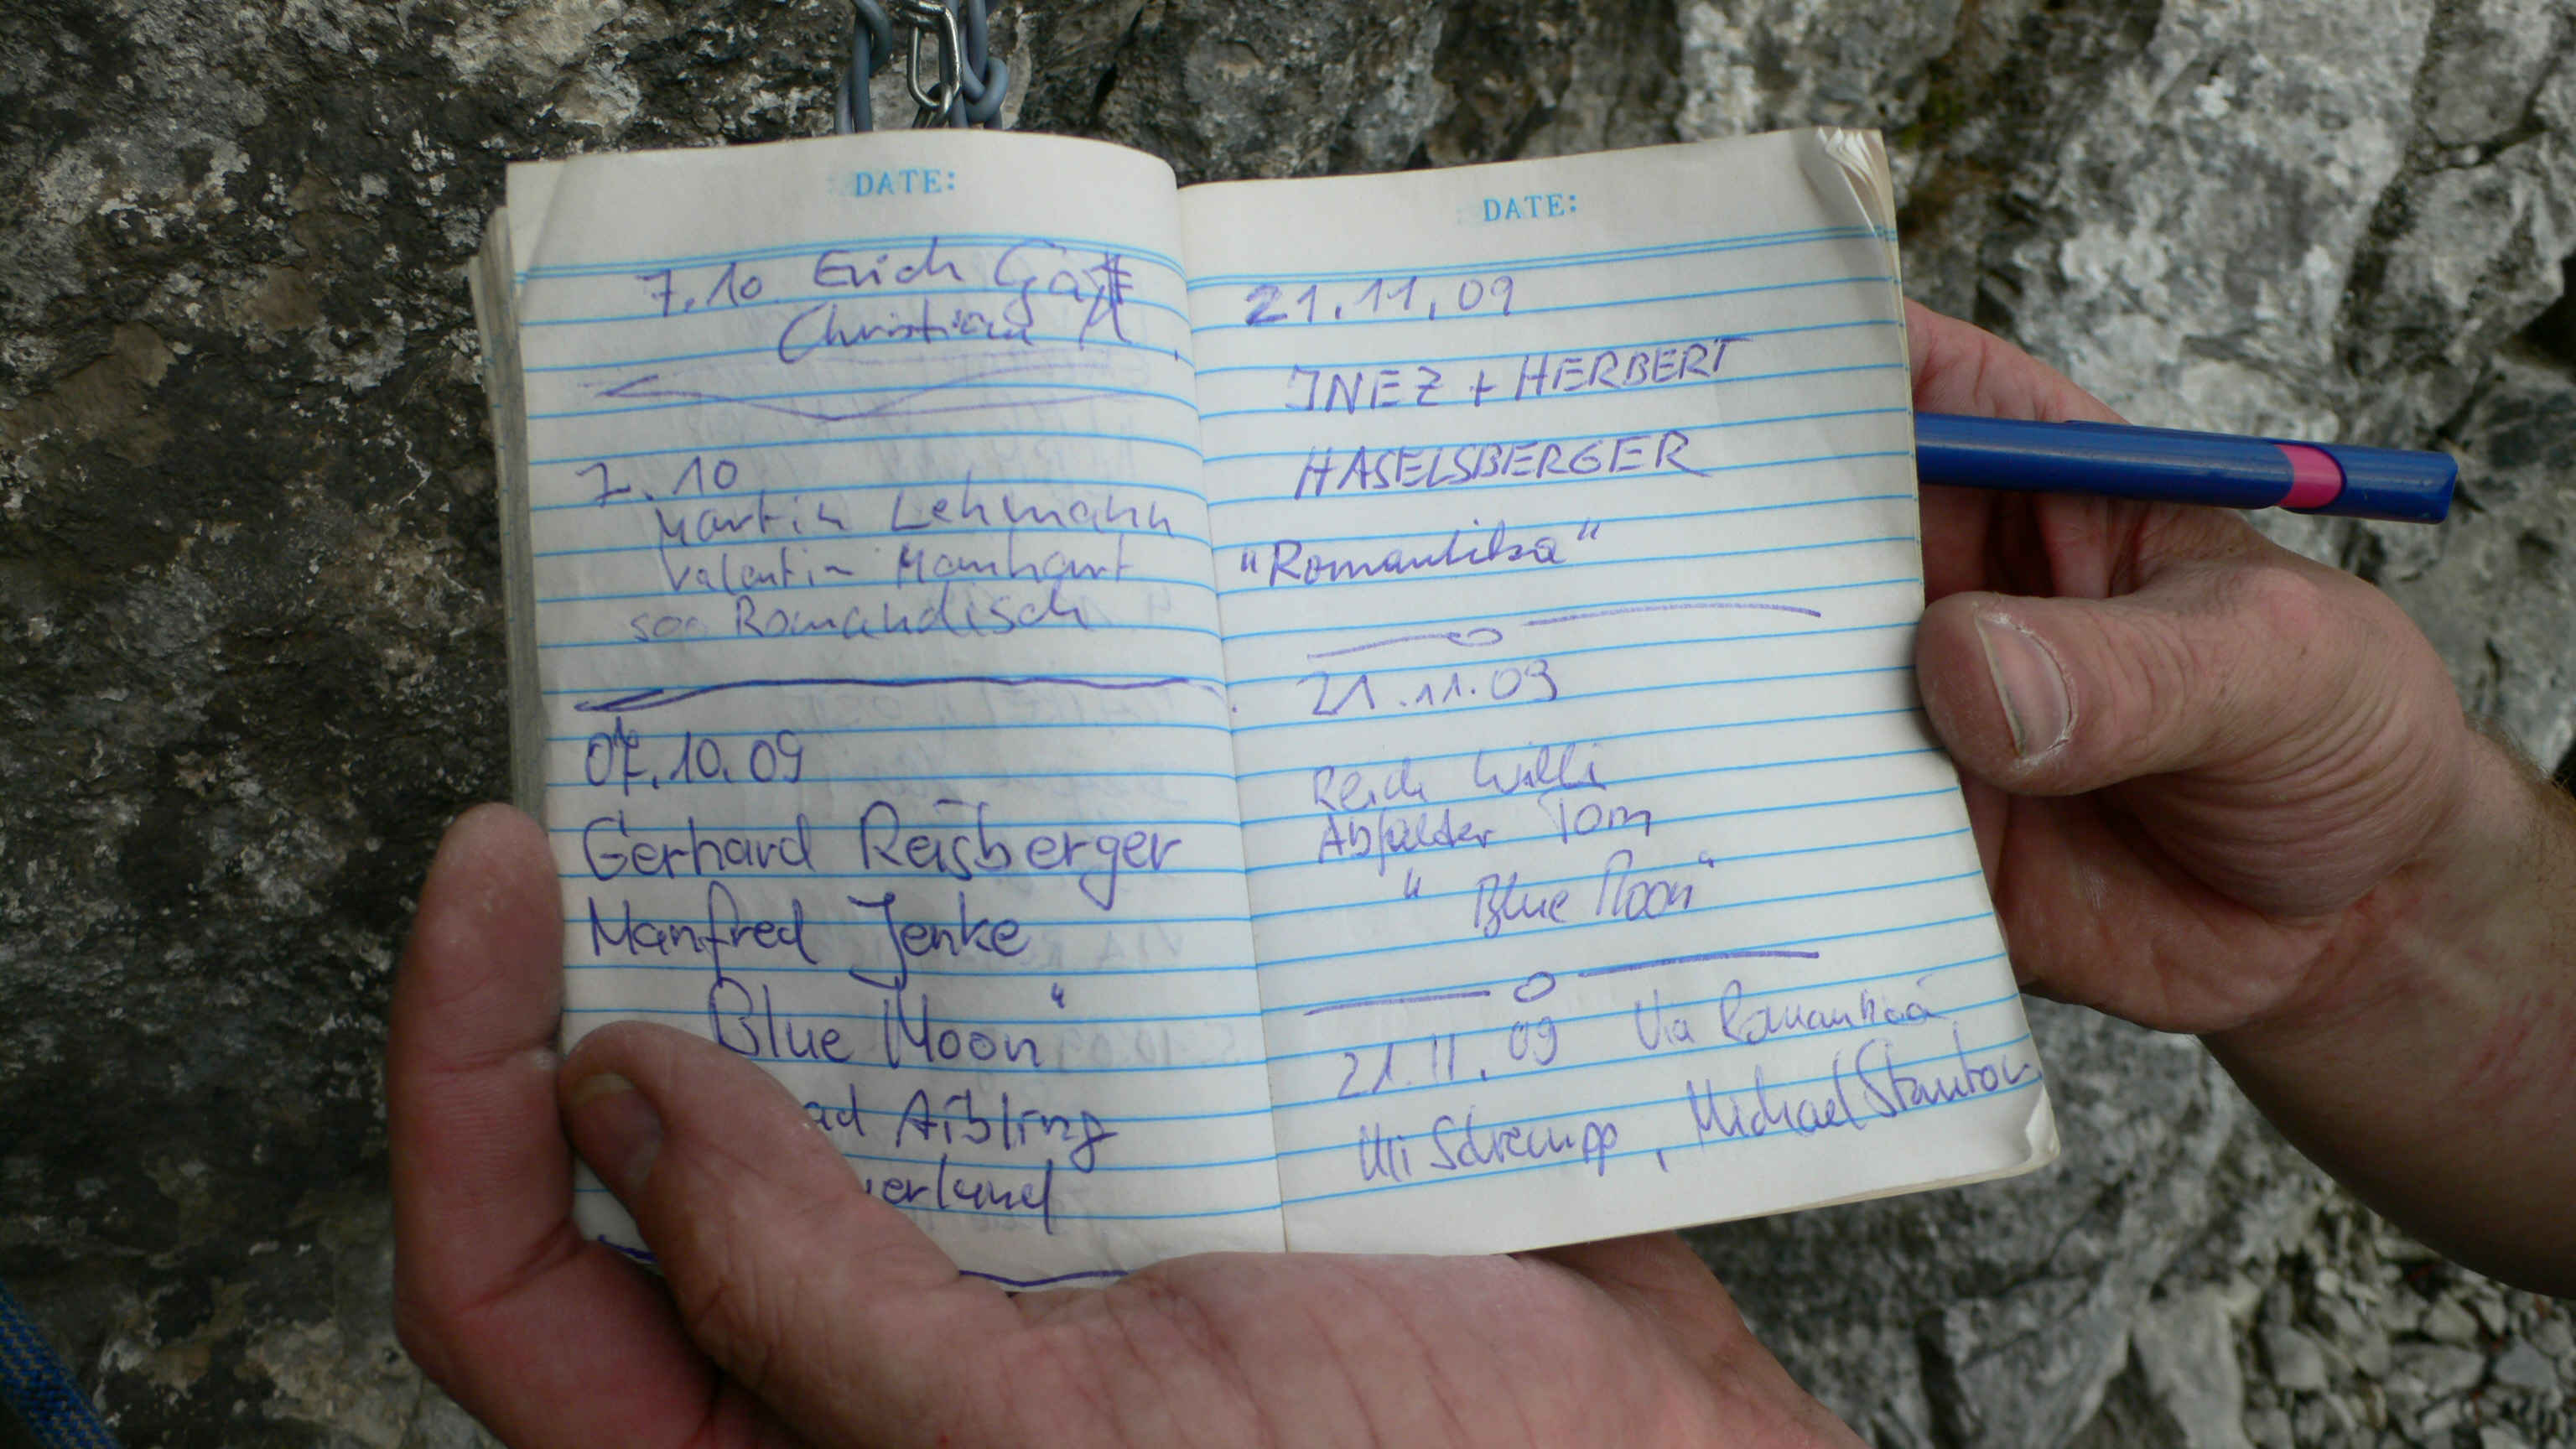 DATE:
7.10 Erich
Christian
7.10
Martin Lehmann
Valentin Manhart
soo Romandisch
07.10.09
Gerhard Reisberger
Manfred Jenke
Blue Moon"
ad Aibling
erland
DATE:
21.11.09
INEZ + HERBERT
HASELSBERGER
"Romantika"
21.11.09
Reich Willi
Abfalter Tom
"Blue Moon"
21.11.09 Via Romantica
Uli Schrempp, Michael Stanton